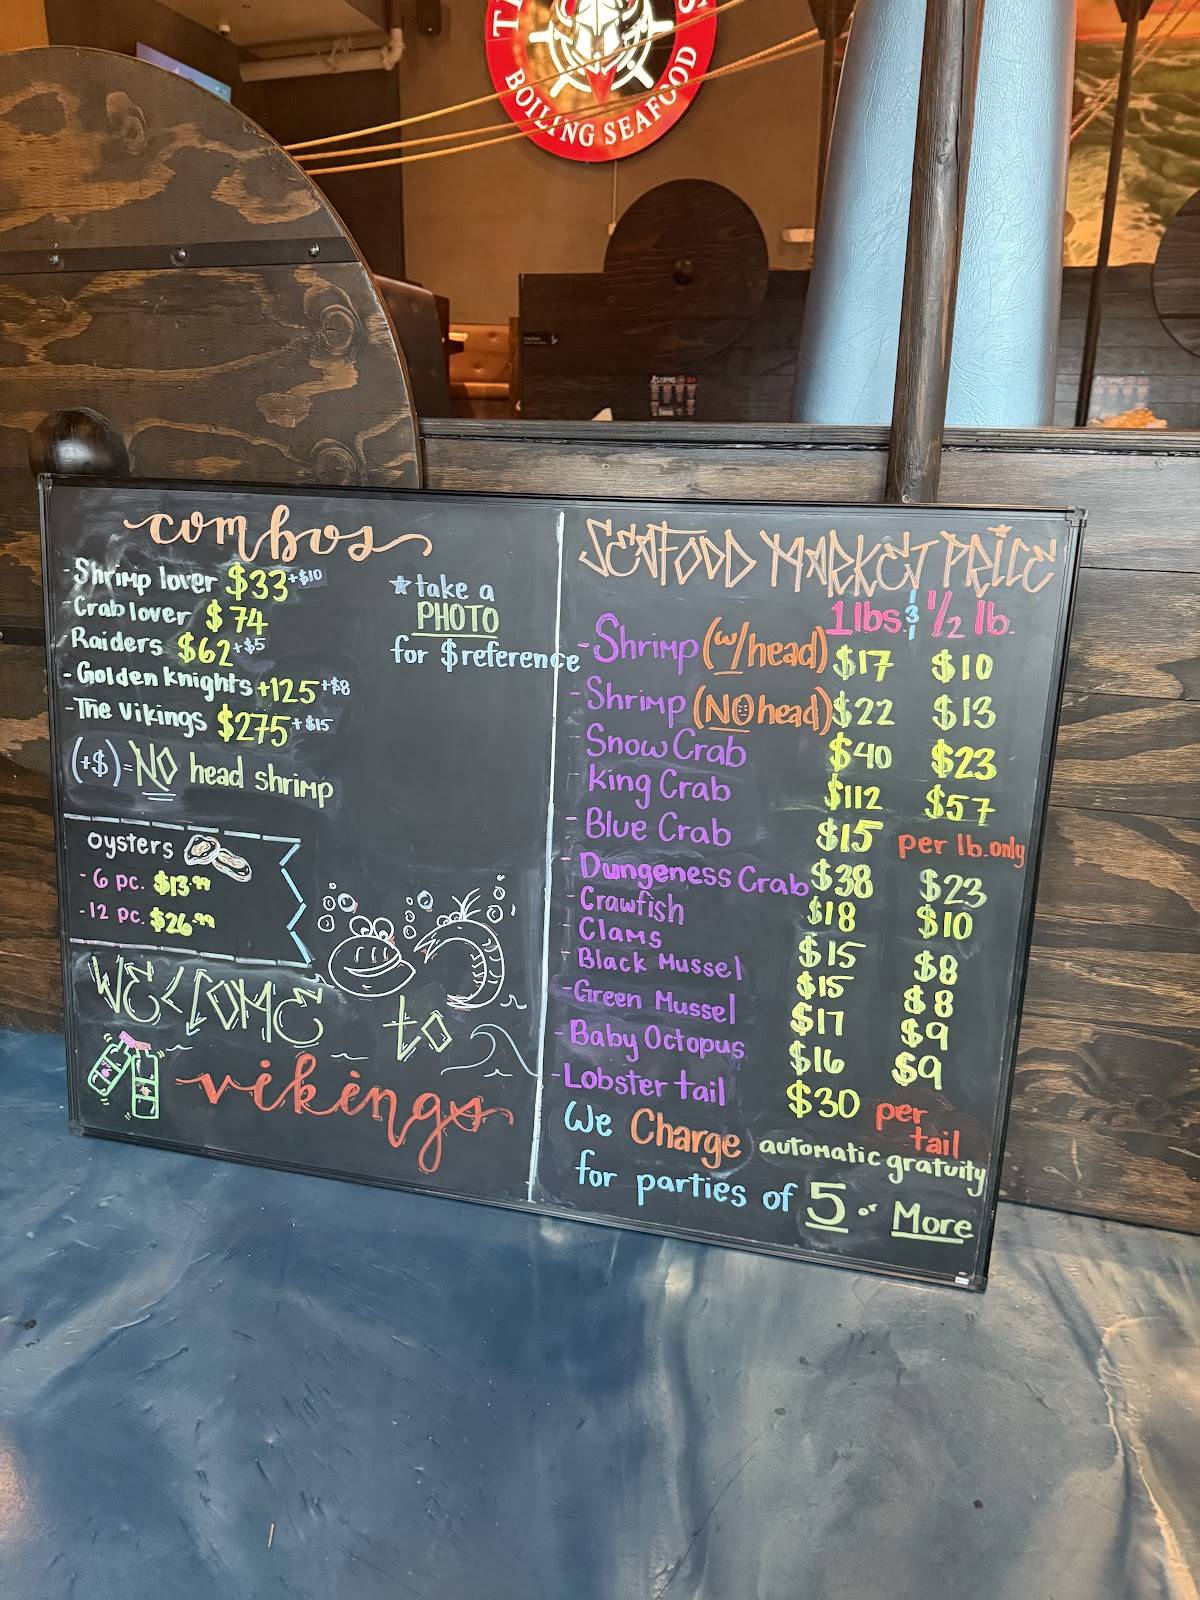 BOILING SEAFOOD
combos
-Shrimp lover $33 +$10
-Crab lover $74
-Raiders $62 +$5
-Golden Knights +125 +$8
-The Vikings $275 + $15
(+$)=NO head shrimp
☆ take a
PHOTO
for $reference
oysters
- 6 pc. $13.99
-12 pc. $26.99
WELCOME to
vikings
SEAFOOD MARKET PRICE
1 lbs & 1/2 lb.
-Shrimp (w/head) $17 $10
-Shrimp (NO head) $22 $13
- Snow Crab $40 $23
- King Crab $112 $57
- Blue Crab $15 per lb. only
- Dungeness Crab $38 $23
- Crawfish $18 $10
- Clams $15 $8
- Black Mussel $15 $8
-Green Mussel $17 $9
-Baby Octopus $16 $9
-Lobster tail $30 per tail
We Charge automatic gratuity
for parties of 5 or More